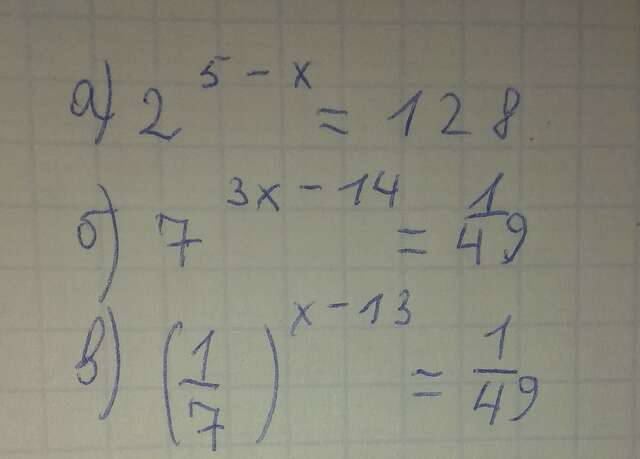 а) 2^(5 - x) = 128
б) 7^(3x - 14) = 1/49
в) (1/7)^(x - 13) = 1/49